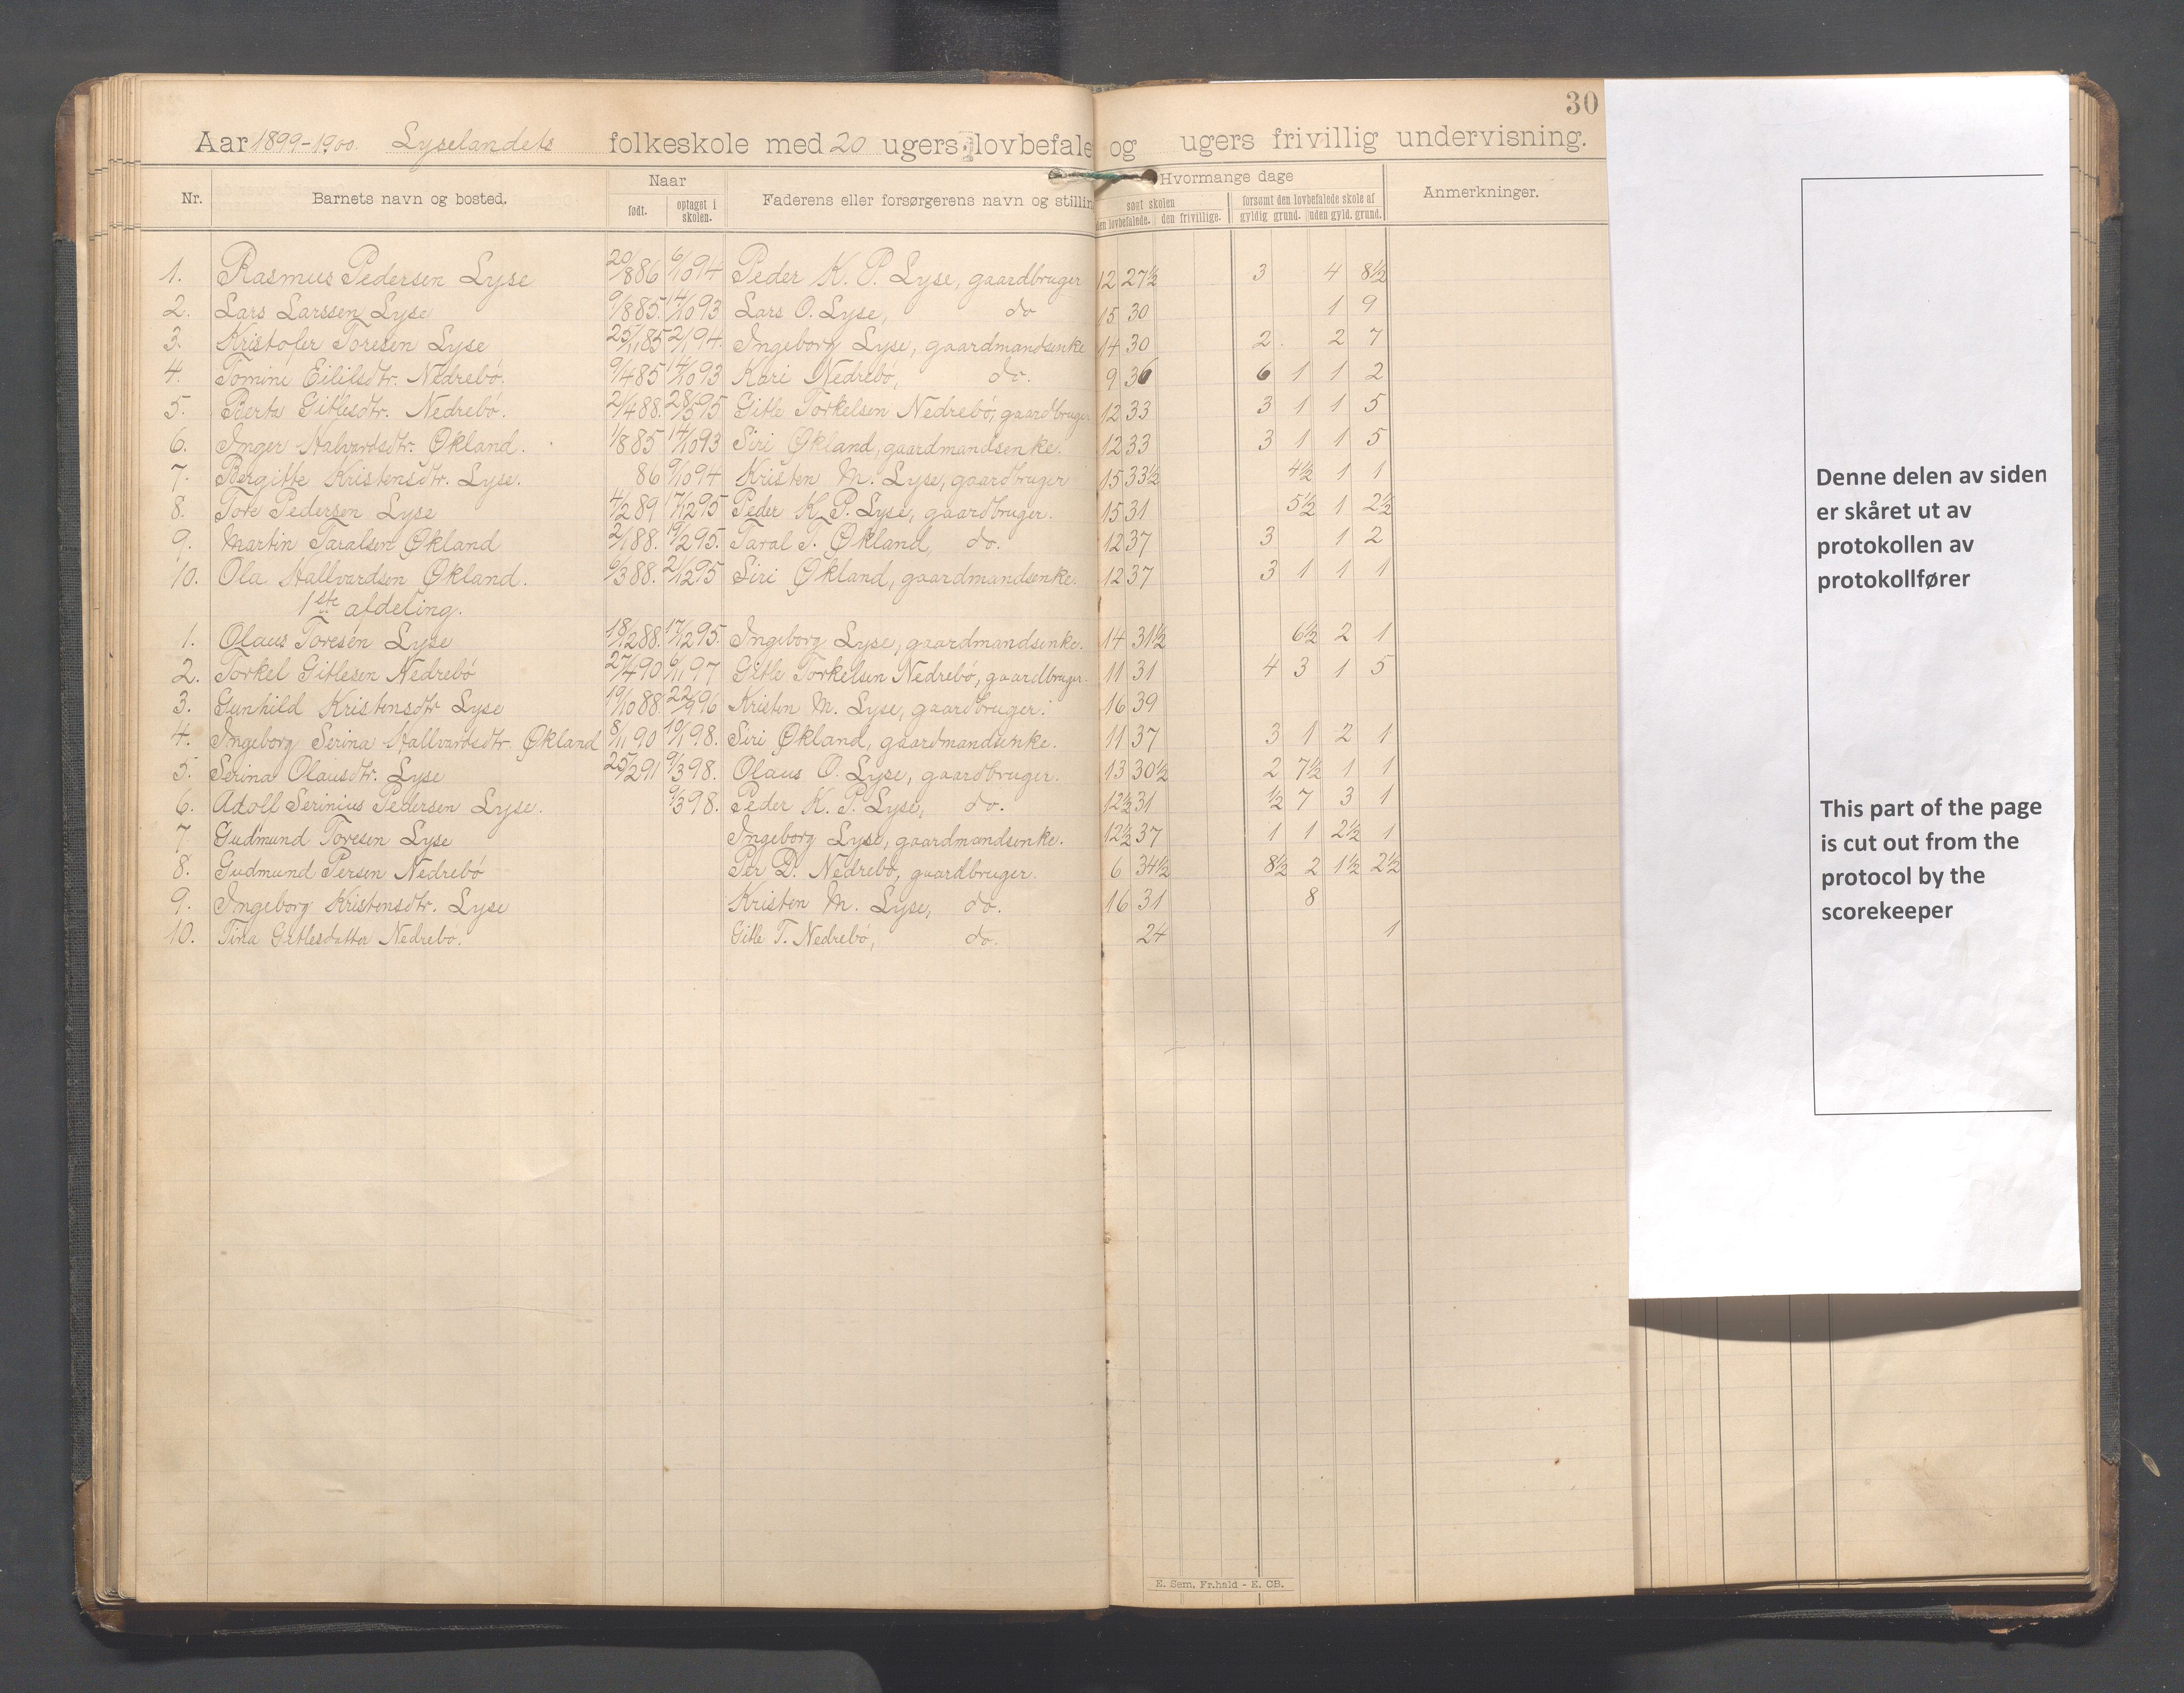 30
Aar 1899-1900. Lyselandets folkeskole med 20 ugers lovbefale og ugers frivillig undervisning.
Nr. Barnets navn og bosted. Naar født. optaget i skolen. Faderens eller forsørgerens navn og stillin Hvormange dage søgt skolen den lovbefalede. den frivillige. forsømt den lovbefalede skole af gyldig grund. uden gyld. grund. Anmerkninger.
1. Rasmus Pedersen Lyse 20/8 86 6/10 94 Peder K. P. Lyse, gaardbruger 12 27½ 3 4 8½
2. Lars Larssen Lyse 9/8 85. 14/10 93 Lars O. Lyse, do 15 30 1 9
3. Kristofer Toresen Lyse 25/11 85 2/1 94. Ingeborg Lyse, gaardmandsenke 14 30 2. 2 7
4. Tomine Eililsdtr. Nedrebö. 9/4 85 14/10 93 Kari Nedrebö, do. 9 36 6 1 1 2
5. Berta Gitlesdtr. Nedrebö. 21/4 88. 28/3 95 Gitle Torkelsen Nedrebö, gaardbruger 12 33 3 1 1 5
6. Inger Halvardsdtr. Økland. 1/8 85 14/10 93 Siri Økland, gaardmandsenke. 12 33 3 1 1 5
7. Bergitte Kristensdtr. Lyse. 86 9/10 94 Kristen M. Lyse, gaardbruger 15 33½ 4½ 1 1
8. Tore Pedersen Lyse 4/2 89 17/12 95 Peder K. P. Lyse, gaardbruger. 15 31 5½ 1 2½
9. Martin Taralsen Økland 2/1 88. 19/2 95. Taral T. Økland, do. 12 37 3 1 2
10. Ola Hallvardsen Økland. 6/3 88. 21/12 95 Siri Økland, gaardmandsenke. 12 37 3 1 1 1
1ste afdeling.
1. Olaus Toresen Lyse 18/12 88. 17/12 95. Ingeborg Lyse, gaardmandsenke. 14 31½ 6½ 2 1
2. Torkel Gitlesen Nedrebö 27/4 90 6/11 97 Gitle Torkelsen Nedrebö, gaardbruger. 11 31 4 3 1 5
3. Gunhild Kristensdtr Lyse 19/10 88. 22/9 96 Kristen M. Lyse, gaardbruger. 16 39
4. Ingeborg Serina Hallvardsdtr Økland 8/11 90 10/1 98. Siri Økland, gaardmandsenke. 11 37 3 1 2 1
5. Serina Olausdtr. Lyse 25/2 91 9/3 98. Olaus O. Lyse, gaardbruger. 13 30½ 2 7½ 1 1
6. Adolf Serinius Pedersen Lyse. 9/3 98. Peder K. P. Lyse, do. 12½ 31 ½ 7 3 1
7. Gudmund Toresen Lyse Ingeborg Lyse, gaardmandsenke. 12½ 37 1 1 2½ 1
8. Gudmund Persen Nedrebö Per D. Nedrebö, gaardbruger. 6 34½ 8½ 2 1½ 2½
9. Ingeborg Kristensdtr. Lyse Kristen M. Lyse, do. 16 31 8
10. Tina Gitlesdatter Nedrebö. Gitle T. Nedrebö, do. 24 1
E. Sem, Fr.hald - E. CB.
Denne delen av siden
er skåret ut av
protokollen av
protokollfører
This part of the page
is cut out from the
protocol by the
scorekeeper